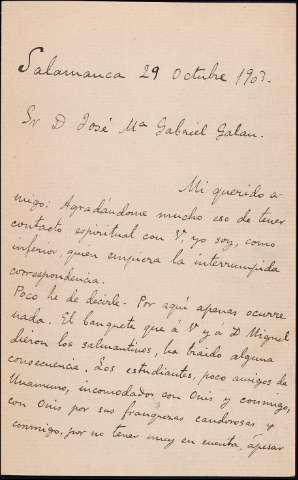 Salamanca 29 Octubre 1903.
Sr D José Mª Gabriel Galan.
Mi querido a-
migo: Agradándome mucho eso de tener
contacto espiritual con V, yo soy, como
inferior quien empieza la interrumpida
correspondencia.
Poco he de decirle. Por aquí apenas ocurre
nada. El banquete que á V y á D Miguel
dieron los salmantinos, ha traido alguna
consecuencia. Los estudiantes, poco amigos de
Unamuno, incomodados con Onis y conmigo,
con Onis por sus franquezas candorosas y
conmigo, por no tener muy en cuenta, ápesar